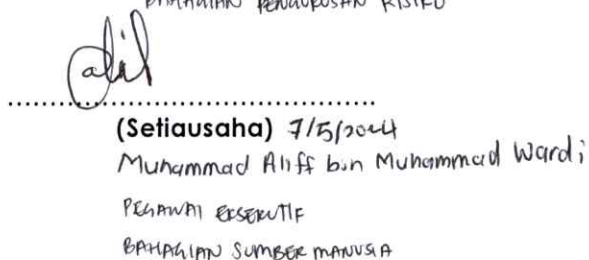 BAHAGIAN PENGURUSAN RISIKO
(Setiausaha) 7/5/2024
Muhammad Aliff bin Muhammad Wardi
PEGAWAI EKSEKUTIF
BAHAGIAN SUMBER MANUSIA